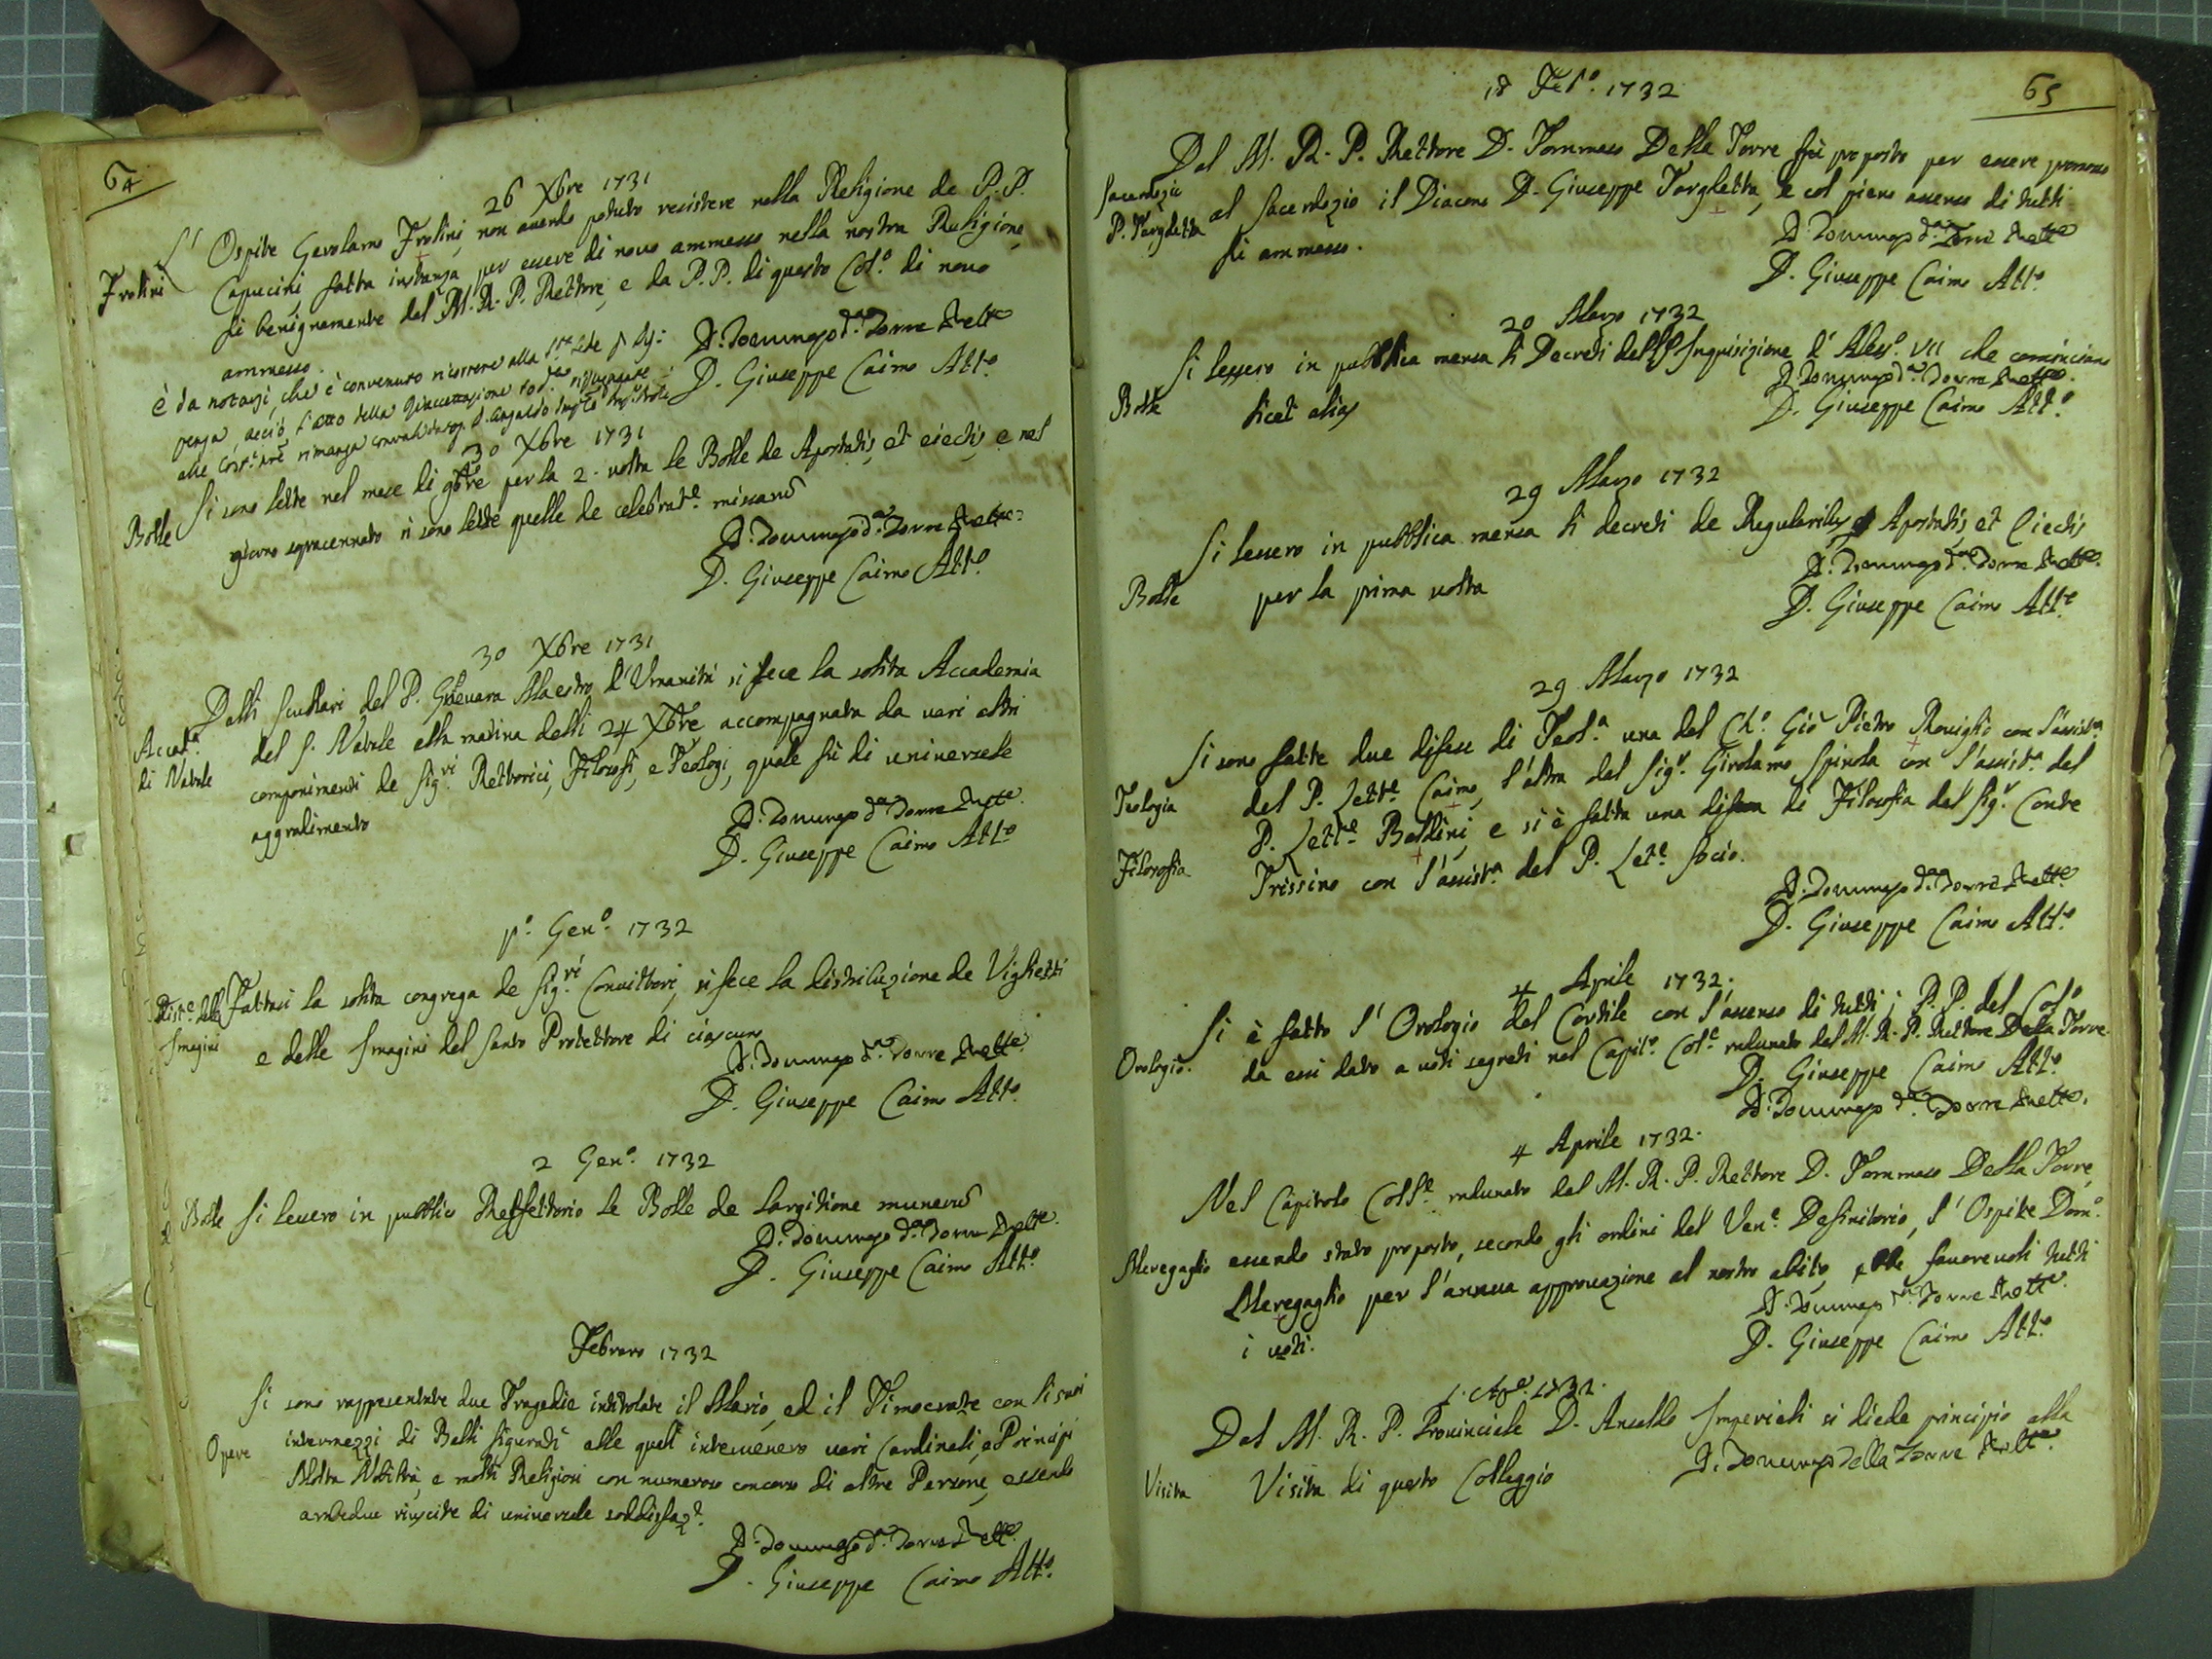 64
26 Xbre 1731
L' Ospite Gerolamo Frolini, non avendo potuto resistere nella Religione de P.P.
Frolini
Capucini, fatta instanza per essere di novo ammesso nella nostra Religione,
fù benignamente dal M. R. P. Rettore, e da P.P. di questo Col.º di novo
ammesso.
D. Tommaso d.ª Torre Rett.e
D. Giuseppe Caimo Att.º
è da notarsi, che è convenuto ricorrere alla S.ta Sede p
penza, acciò l'atto della
alle rimanga
30 Xbre 1731
Si sono lette nel mese di 9bre per la 2. volta le Bolle de Apostatis, et eiectis, e nel
Bolle
giorno sopracennato si sono lette quelle de celebrat.e missarū
D. Tommaso d.ª Torre Rett.e
D. Giuseppe Caimo Att.º
30 Xbre 1731
Dalli Scullari del P. Guevara Maestro d'Umanità si fece la solita Accademia
Accad.ª
di Natale
del S. Natale alla matina delli 24 Xbre, accompagnata da vari altri
componimenti de Sig.ri Retthorici, Filosofi, e Teologi, quale fù di universale
aggradimento
D. Tommaso d.ª Torre Rett.e
D. Giuseppe Caimo Att.º
p.º Gen.º 1732
Dist.e delle
Imagini
Fattasi la solita congrega de Sig.ri Convittori, si fece la distribuzione de Viglietti
e delle Imagini del Santo Protettore di ciascuno
D. Tommaso d.ª Torre Rett.e
D. Giuseppe Caimo Att.º
2 Gen.º 1732
Bolle
Si lessero in pubblico Reffettorio le Bolle de largitione munerū
D. Tommaso d.ª Torre Rett.e
D. Giuseppe Caimo Att.º
Febraro 1732
Si sono rappresentate due Tragedie intitolate il Mario, ed il Timocrate con li suoi
Opere
intermezzi di Balli figurati alle quali intervenero vari Cardinali, e Principi
Molta Nobiltà, e molti Religiosi con numeroso concorso di altre Persone, essendo
ambedue riuscite di universale soddisfaz.e
D. Tommaso d.ª Torre Rett.e
D. Giuseppe Caimo Att.º
65
18 Feb.º 1732
Dal M. R. P. Rettore D. Tommaso Della Torre fù proposto per essere promosso
Sacerdozio
P. Targhetta
al Sacerdozio il Diacono D. Giuseppe Targhetta, e col pieno assenso di tutti
fù ammesso.
D. Tommaso d.ª Torre Rett.e
D. Giuseppe Caimo Att.º
20 Marzo 1732
Si lessero in pubblica mensa li Decreti dell' Inquisizione d' Aless.º VII che cominciano
Bolle
licet alias
D. Tommaso d.ª Torre Rett.e
D. Giuseppe Caimo Att.º
29 Marzo 1732
Si lessero in pubblica mensa li decreti de Regularibus Apostatis, et Eiectis
Bolle
per la prima volta
D. Tommaso d.ª Torre Rett.e
D. Giuseppe Caimo Att.º
29 Marzo 1732
Si sono fatte due difese di Teol.ª una dal Ch.º Giò Pietro Roviglio con l'assist.ª
Teologia
del P. Lett.e Caimo, l'altra dal Sig.r Girolamo Spinola con l'assist.ª del
P. Lett.e Bellini, e si è fatta una difesa di Filosofia dal Sig.r Conte
Filosofia
Trissino con l'assist.ª del P. Let.e Socio.
D. Tommaso d.ª Torre Rett.e
D. Giuseppe Caimo Att.º
4 Aprile 1732.
Si è fatto l' Orologio del Cortile con l'assenso di tutti i P.P. del Col.º
Orologio.
da essi dato a voti segreti nel Capit.º Col.e radunato dal M. R. P. Rettore Della Torre.
D. Giuseppe Caimo Att.º
D. Tommaso d.ª Torre Rett.e
4 Aprile 1732.
Nel Capitolo Coll.e radunato dal M. R. P. Rettore D. Tommaso Della Torre,
Meregaglio
essendo stato proposto, secondo gli ordini del Ven.e Definitorio, l' Ospite Dom.º
Meregaglio per l'annua approvazione al nostro abito, ebbe favorevoli tutti
i voti.
D. Tommaso d.ª Torre Rett.e
D. Giuseppe Caimo Att.º
Dal M. R. P. Provinciale D. Ansello Imperiali si diede principio alla
Visita
Visita di questo Colleggio
D. Tommaso Della Torre Rett.e